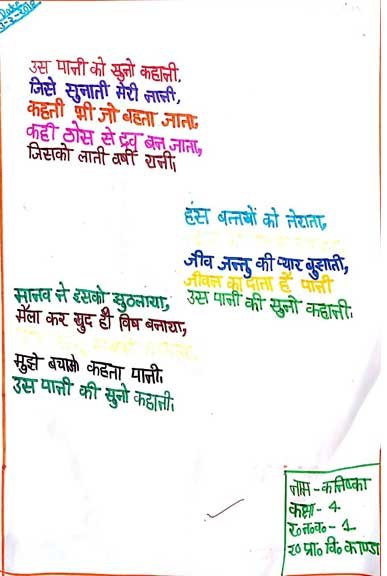 Date
उस पानी को सुनो कहानी,
जिसे सुनाती मेरी नानी,
कहती भी जो बहता जाता
कही ठोस से द्रव बन जाता,
जिसको लाती वर्षा रानी।
हंस बत्तखों को तैराता,
जीव जन्तु की प्यार बुझाती,
जीवन का दाता है पानी
उस पानी की सुनो कहानी।
मानव ने इसको झुठलाया,
मैला कर खुद ही विष बनाया,
मुझे बचाओ कहता पानी।
उस पानी की सुनो कहानी।
नाम - कनिष्का
कक्षा - 4
र०न०व० - 1
रा० प्रा० वि० काण्डा